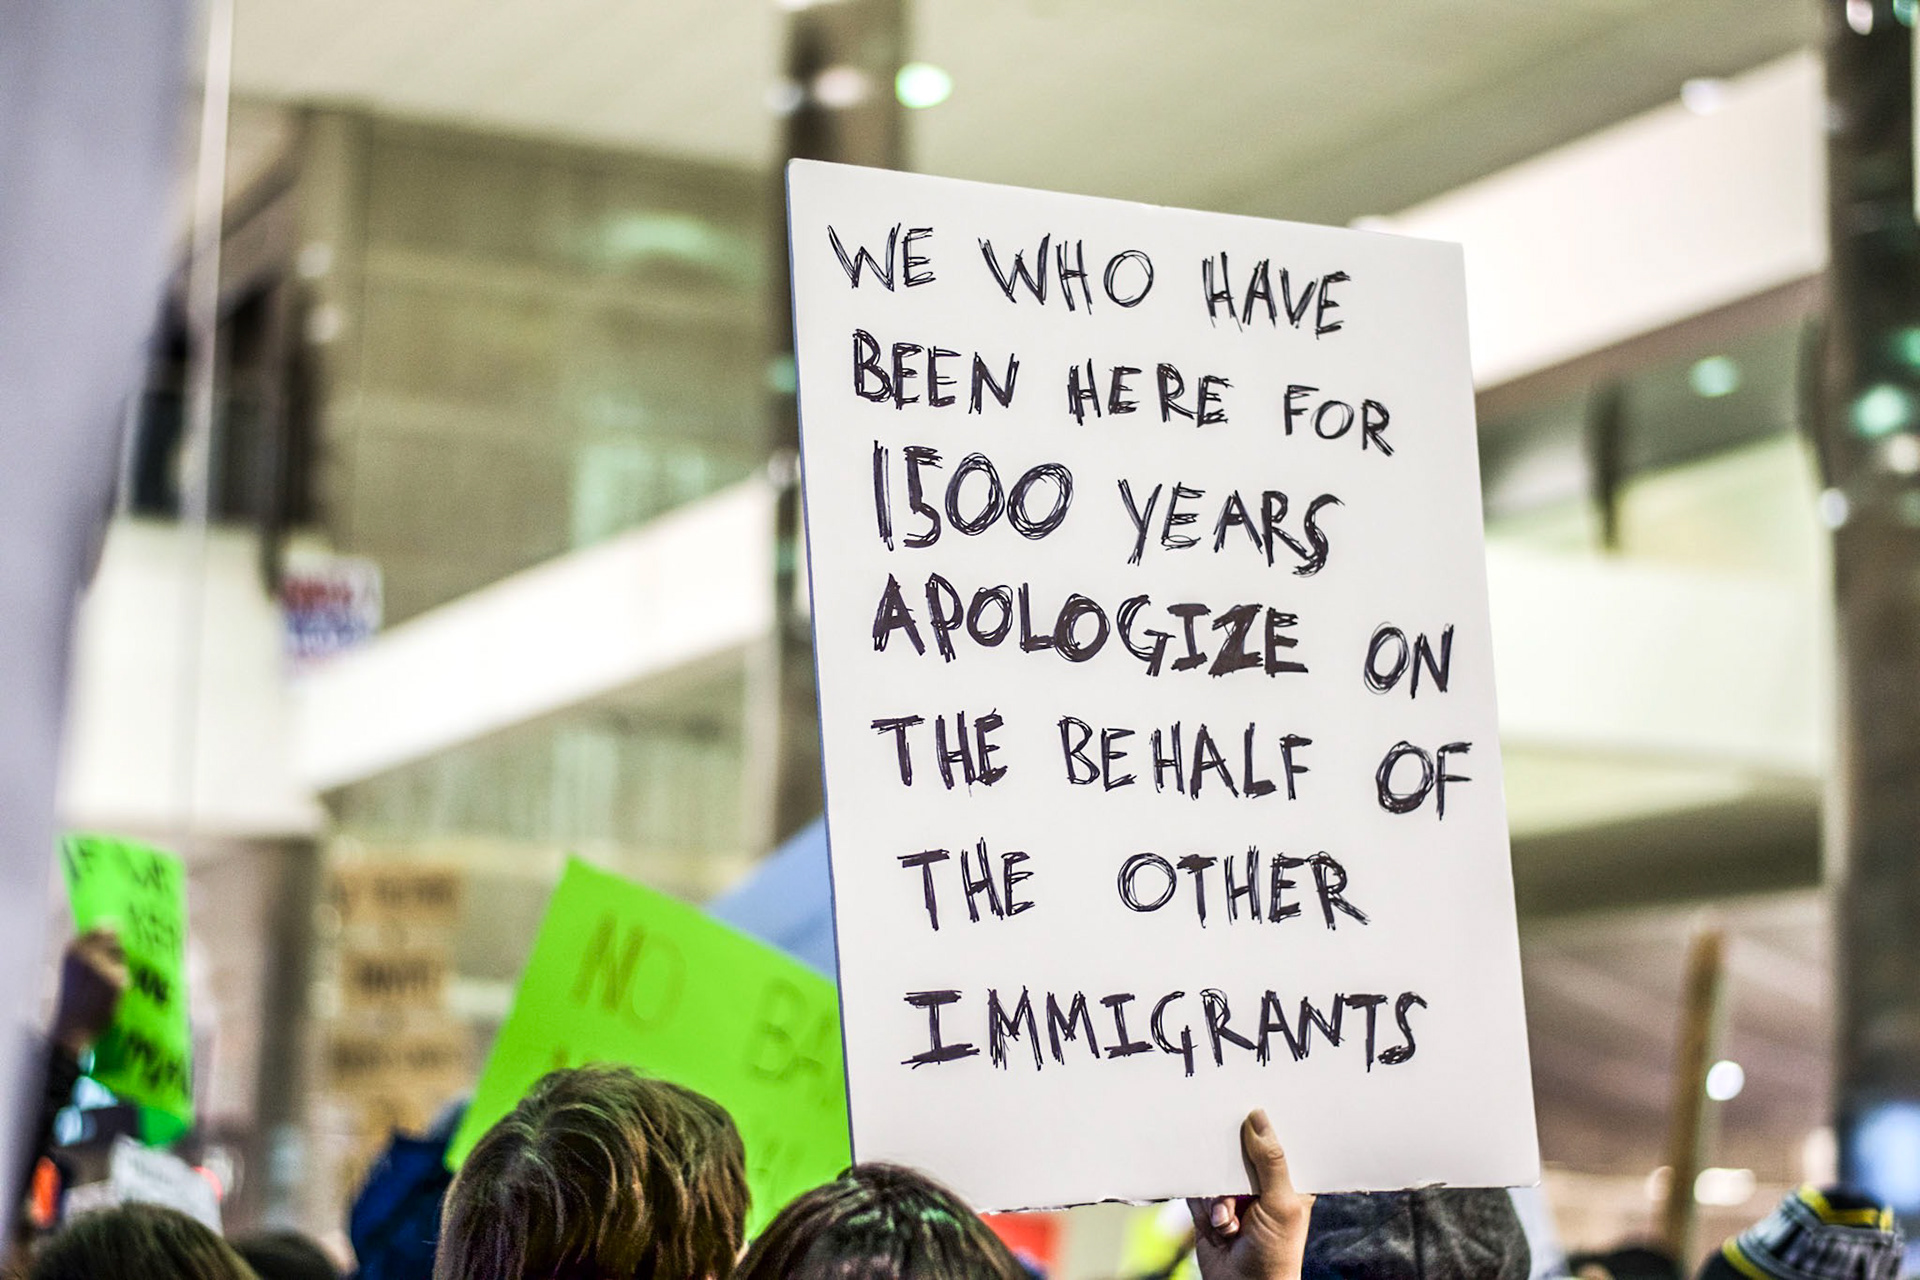 WE WHO HAVE
BEEN HERE FOR
1500 YEARS
APOLOGIZE ON
THE BEHALF OF
THE OTHER
IMMIGRANTS
NO
IF WE